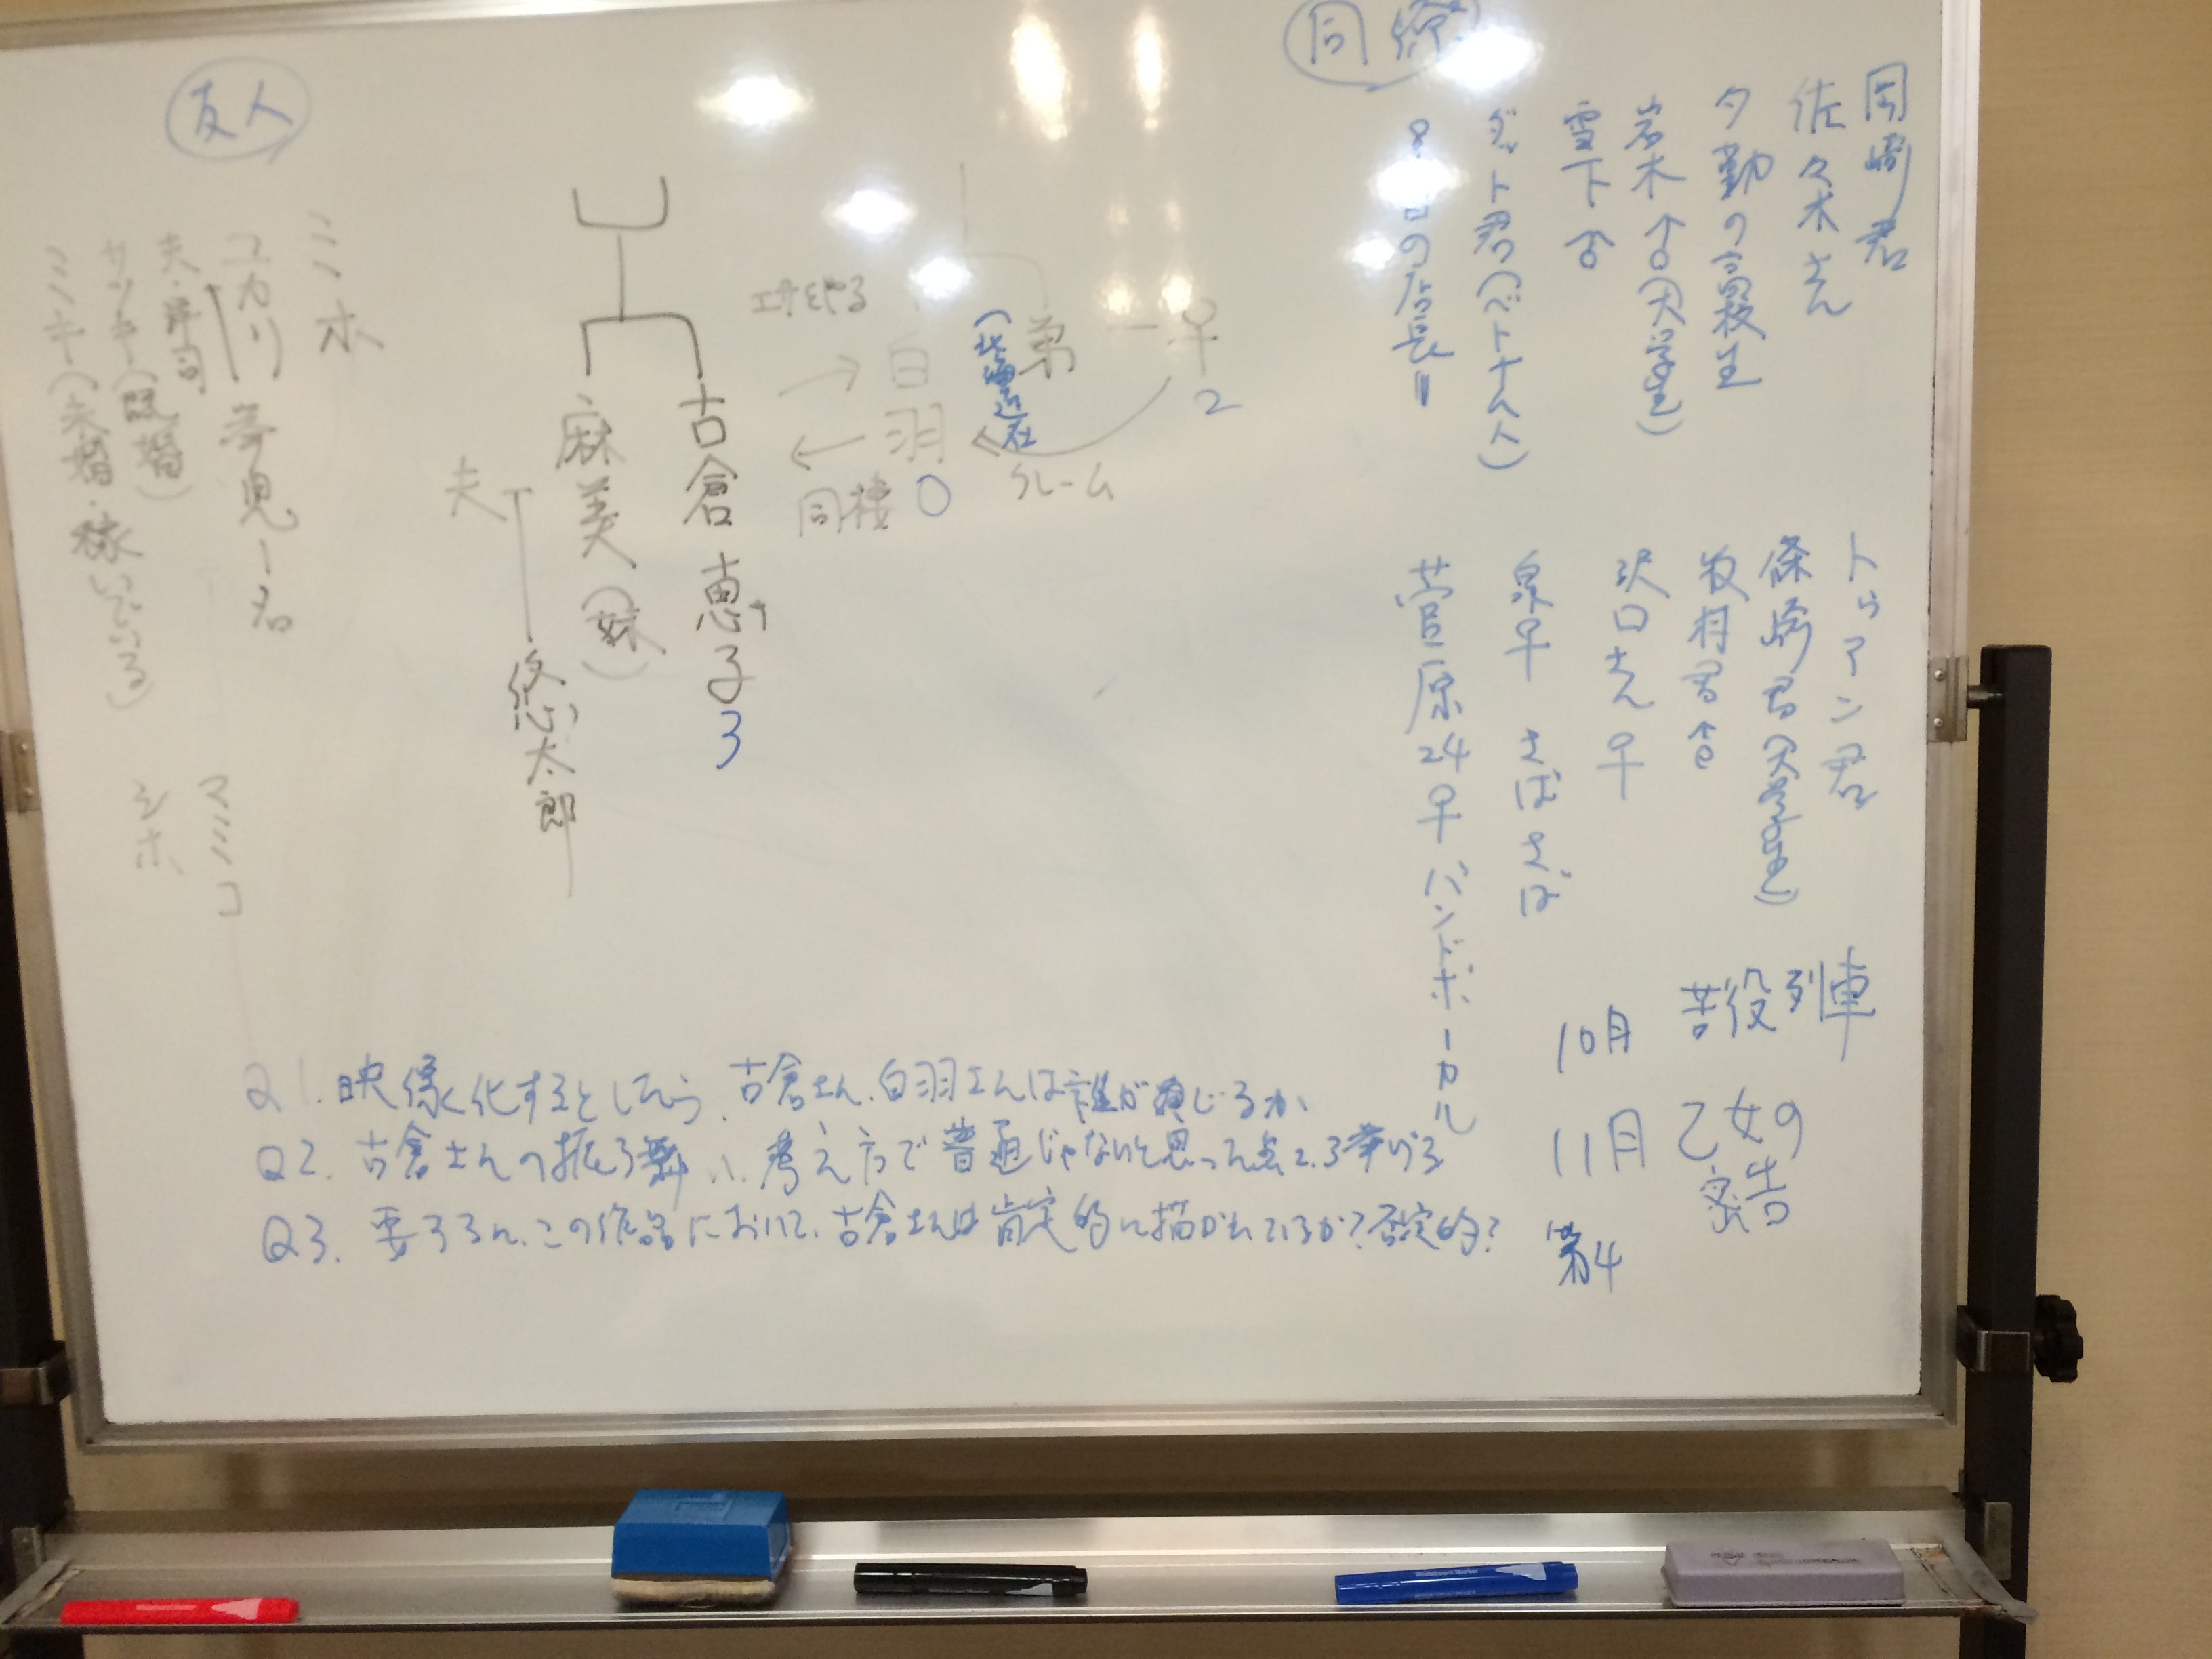 同僚
岡崎君
佐々木さん
夕勤の高校生
岩木♂(大学生)
雪下♂
ダット君(ベトナム人)
の店長
トゥアン君
條崎君(大学生)
牧村君♂
沢口さん♀
泉♀ さばさば
菅原24♀ バンドボーカル
友人
ミホ
ユカリ 夢児一名
夫・洋司
サツキ(既婚)
ミキ(未婚・稼いでいる)
マミコ
シホ
古倉恵子3
麻美(妹)
夫
悠太郎
エサをやる
白羽0
同棲
弟
(北海道在
♀2
クレーム
苦役列車
10月
11月 乙女の
密告
第4
Q1. 映像化するとしたら、古倉さん、白羽さんは誰が演じるか
Q2. 古倉さんの振る舞い、考え方で普通じゃないと思った点2、3挙げる
Q3. 要するに、この作品において、古倉さんは肯定的に描かれているか?否定的?
Whiteboard Marker